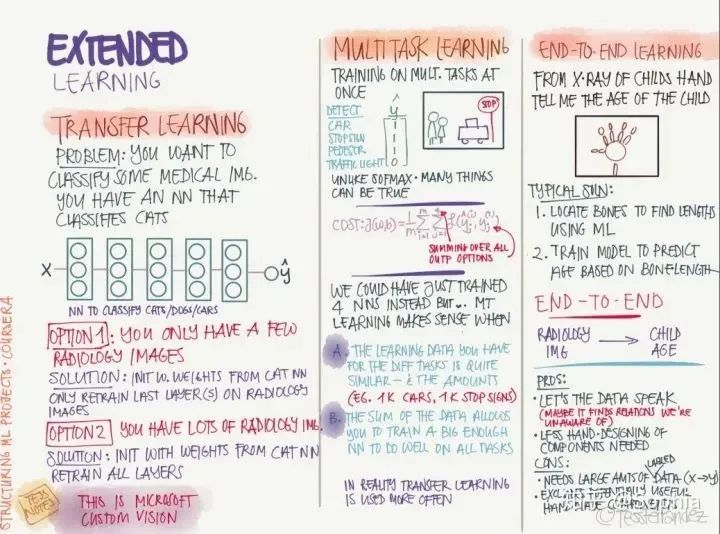 EXTENDED
LEARNING
TRANSFER LEARNING
PROBLEM: YOU WANT TO
CLASSIFY SOME MEDICAL IMG.
YOU HAVE AN NN THAT
CLASSIFIES CATS
X
ŷ
NN TO CLASSIFY CATS/DOGS/CARS
OPTION 1: YOU ONLY HAVE A FEW
RADIOLOGY IMAGES
SOLUTION: INIT W. WEIGHTS FROM CAT NN
ONLY RETRAIN LAST LAYER(S) ON RADIOLOGY
IMAGES
OPTION 2 YOU HAVE LOTS OF RADIOLOGY IMG.
SOLUTION: INIT WITH WEIGHTS FROM CAT NN
RETRAIN ALL LAYERS
TESS
NOTE
THIS IS MICROSOFT
CUSTOM VISION
STRUCTURING ML PROJECTS · COURSERA
MULTI TASK LEARNING
TRAINING ON MULT. TASKS AT
ONCE
DETECT ŷ
CAR 1
STOPSIGN 1
PEDESTR. 1
TRAFFIC LIGHT 0
STOP
UNLIKE SOFMAX · MANY THINGS
CAN BE TRUE
COST: J(w,b) = 1/m
SUMMING OVER ALL
OUTP OPTIONS
WE COULD HAVE JUST TRAINED
4 NNS INSTEAD BUT... MT
LEARNING MAKES SENSE WHEN
A. THE LEARNING DATA YOU HAVE
FOR THE DIFF TASKS IS QUITE
SIMILAR - & THE AMOUNTS
(EG. 1K CARS, 1K STOP SIGNS)
B. THE SUM OF THE DATA ALLOWS
YOU TO TRAIN A BIG ENOUGH
NN TO DO WELL ON ALL TASKS
IN REALITY TRANSFER LEARNING
IS USED MORE OFTEN
END-TO-END LEARNING
FROM X-RAY OF CHILDS HAND
TELL ME THE AGE OF THE CHILD
TYPICAL SOLN:
1. LOCATE BONES TO FIND LENGTHS
USING ML
2. TRAIN MODEL TO PREDICT
AGE BASED ON BONELENGTH
END-TO-END
RADIOLOGY → CHILD
IMG AGE
PROS:
· LET'S THE DATA SPEAK
(MAYBE IT FINDS RELATIONS WE'RE
UNAWARE OF)
· LESS HAND-DESIGNING OF
COMPONENTS NEEDED
CONS:
LABELED
· NEEDS LARGE AMTS OF DATA (X→Y)
· EXCLUDES POTENTIALLY USEFUL
HAND
@TessFerrandez